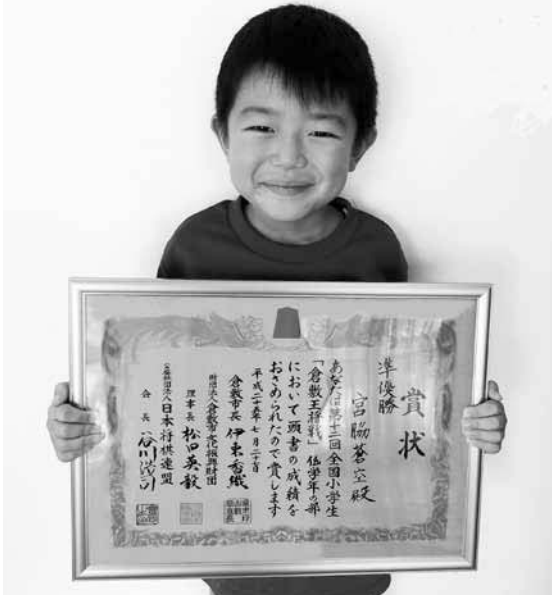 賞状
準優勝
宮脇蒼空殿
あなたは第十二回全国小学生
「倉敷王将戦」低学年の部
において頭書の成績を
おさめられたので賞します
平成二十五年七月二十日
倉敷市長 伊東香織
財団法人倉敷市文化振興財団
理事長 松田英毅
公益社団法人日本将棋連盟
会長 谷川浩司